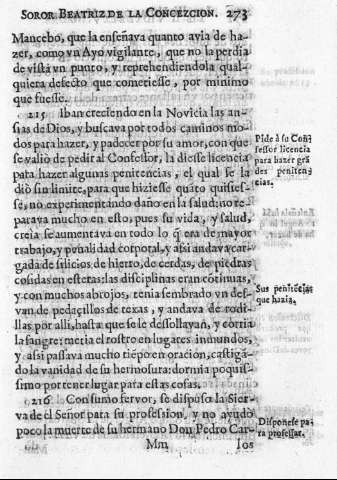 SOROR BEATRIZ DE LA CONCEZCION. 273
Mancebo, que la enseñava quanto avia de ha-
zer, como vn Ayo vigilante, que no la perdia
de vista vn punto, y reprehendiendola qual-
quiera defecto que cometiesse, por minimo
que fuesse.
215 Iban creciendo en la Novicia las an-
sias de Dios, y buscava por todos caminos mo-
dos para hazer, y padecer por su amor, con que
se valiò de pedir al Confessor, la diesse licencia
para hazer algunas penitencias, el qual se la
diò sin limite, para que hiziesse quãto quisies-
se, no experimentando daño en la salud: no re-
parava mucho en esto, pues su vida, y salud,
creìa se aumentava en todo lo q̃ era de mayor
trabajo, y penalidad corporal, y assi andava car-
gada de silicios de hierro, de cerdas, de piedras
cosidas en esteras: las disciplinas eran cõtinuas,
y con muchos abrojos, tenia sembrado vn des-
van de pedaçillos de texas, y andava de rodi-
llas por alli, hasta que se le dessollavan, y corria
la sangre: metia el rostro en lugares inmundos,
y assi passava mucho tiẽpo en oracion, castigã-
do la vanidad de su hermosura: dormia poquis-
simo por tener lugar para estas cosas.
216 Con sumo fervor, se dispuso la Sier-
va de el Señor para su profession, y no ayudò
poco la muerte de su hermano Don Pedro Car-
Mm
los
Pide à su Cõf
fessor licencia
para hazer grã
des peniten-
cias.
Sus penitẽcias
que hazia.
Disponese pa-
ra professar.